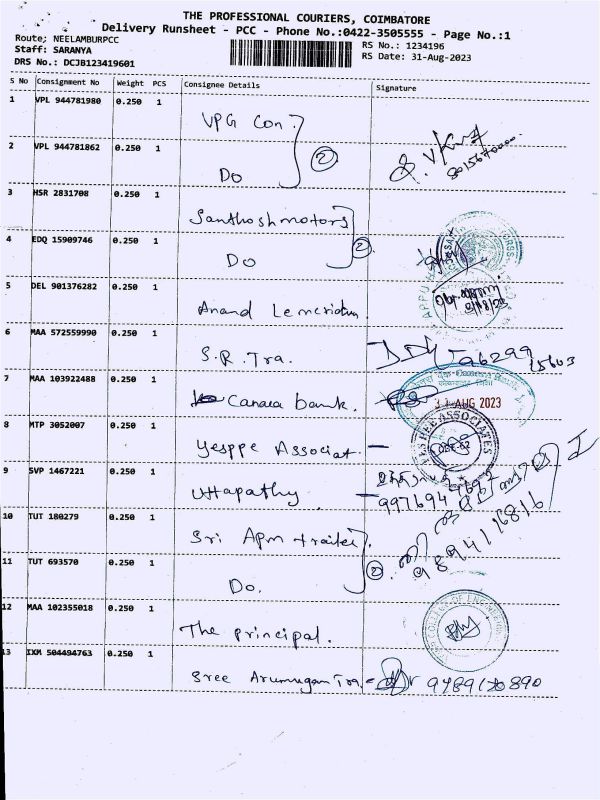 THE PROFESSIONAL COURIERS, COIMBATORE
Delivery Runsheet - PCC - Phone No.:0422-3505555 - Page No.:1
Route; NEELAMBURPCC
Staff: SARANYA
DRS No.: DCJB123419601
RS No.: 1234196
RS Date: 31-Aug-2023
S No Consignment No Weight PCS Consignee Details Signature
1 VPL 944781980 0.250 1 VPG Con.
2 VPL 944781862 0.250 1 Do
2
3 HSR 2831708 0.250 1 Santhosh motors
4 EDQ 15909746 0.250 1 Do
2
5 DEL 901376282 0.250 1 Anand
6 MAA 572559990 0.250 1 S.R. Tra.
7 MAA 103922488 0.250 1 Canara bank.
31 AUG 2023
8 MTP 3052007 0.250 1 Yesppe Associat
ASSOCIATES
9 SVP 1467221 0.250 1 Uttapathy
10 TUT 180279 0.250 1 Sri Apm
9894116816
11 TUT 693570 0.250 1 Do.
2
12 MAA 102355018 0.250 1 The principal.
COLLEGE OF ENGINEERING
13 IXM 504494763 0.250 1 Sree Arumugam Tra. 9489120890